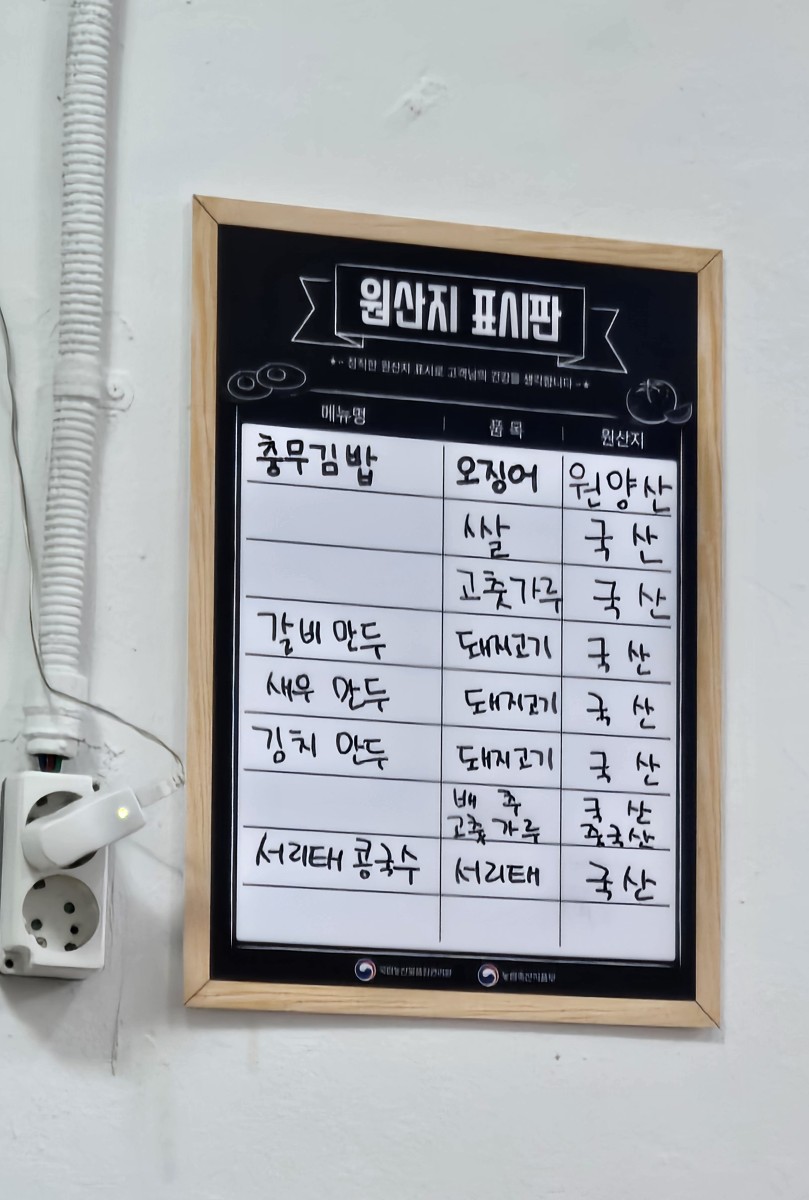 원산지 표시판
정직한 원산지 표시로 고객님의 건강을 생각합니다
메뉴명 품목 원산지
충무김밥 오징어 원양산
쌀 국산
고춧가루 국산
갈비만두 돼지고기 국산
새우만두 돼지고기 국산
김치만두 돼지고기 국산
배추 국산
고춧가루 중국산
서리태콩국수 서리태 국산
국립농산물품질관리원 농림축산식품부